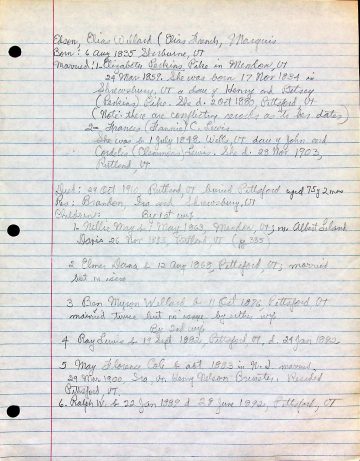 Edson, Elias Willard (Elias French, Marquis
Born: 6 Aug 1835 Sherburne, VT
Married: 1- Elizabeth Perkins Pike in Mendon, VT
29 Mar 1859. She was born 17 Nov 1834 in
Shrewsbury, VT a dau of Henry and Betsey
(Perkins) Pike. She d. 20 Oct 1880 Pittsford, VT
(Note: there are conflicting records as to her dates)
2- Frances (Fannie) C. Lewis
She was b. 1 July 1848 Wells, VT dau of John and
Cordelia Lewis. She d. 23 Nov 1903,
Rutland, VT
Died: 29 Oct 1910 Rutland, VT buried Pittsford aged 75y 2 mos
Res: Brandon, Ira and Shrewsbury, VT
Children: By 1st wife
1. Nellie May b 7 May 1863, Mendon, VT; m. Albert Leland
Davis 26 Nov 1883, Rutland VT (p 335)
2. Elmer Dana b 12 Aug 1868, Pittsford, VT; married
but no issue
3 Ben Myron Willard b. 11 Oct 1876 Pittsford, VT
married twice but no issue by either wife
By 2nd wife
4 Ray Lewis b 19 Sept 1882, Pittsford, VT, d. 24 Jan 1892
5 May Florence Cole b abt 1883 in N.J. married
29 Mar 1900, Ira, VT Henry Nelson Brewster. Resided
Pittsford, VT.
6. Ralph W. b 22 Jan 1889 d 28 June 1892, Pittsford, VT